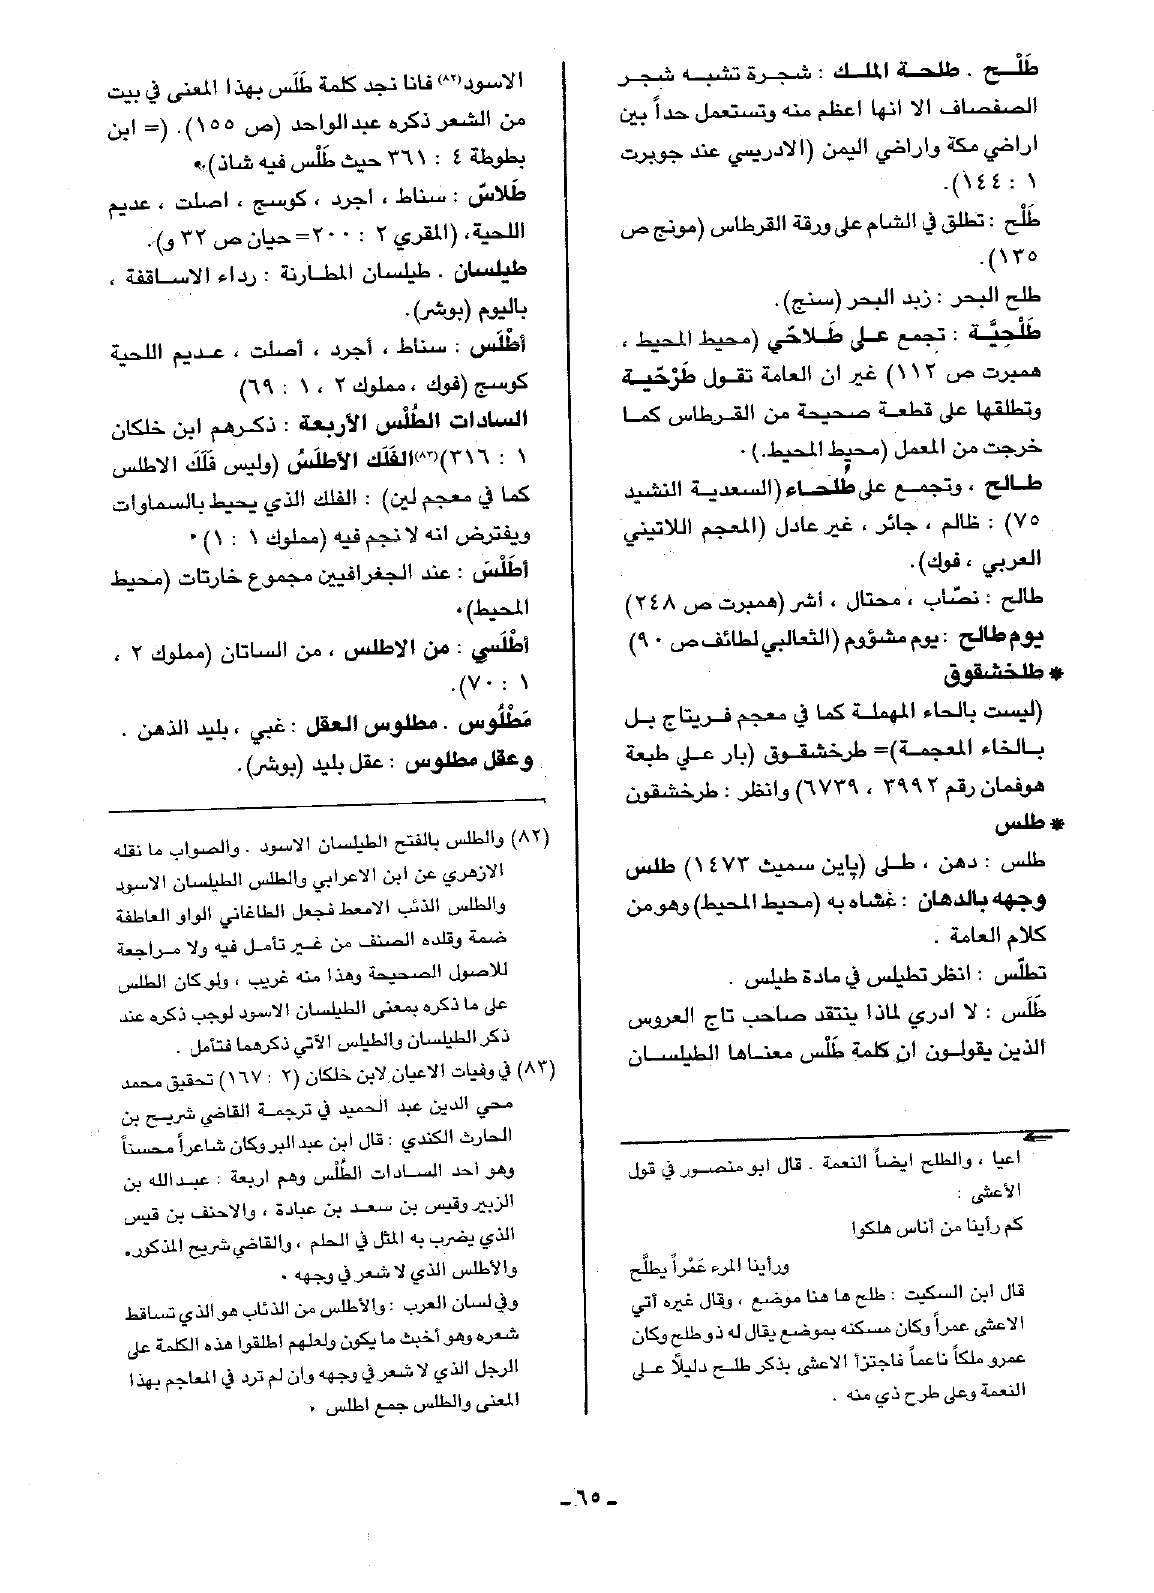 طَلْح . طلحة الملك : شجرة تشبه شجر
الصفصاف الا انها اعظم منه وتستعمل حداً بين
اراضي مكة واراضي اليمن (الادريسي عند جوبرت
١ : ١٤٤).
طَلْح : تطلق في الشام على ورقة القرطاس (مونج ص
١٣٥).
طلح البحر : زبد البحر (سنج).
طَلْحِيَّة : تجمع على طَلاحّي (محيط المحيط ،
همبرت ص ١١٢) غير ان العامة تقول طَرْحَية
وتطلقها على قطعة صحيحة من القرطاس كما
خرجت من المعمل (محيط المحيط).
طالح ، وتجمع على طُلحاء (السعدية النشيد
٧٥) : ظالم ، جائر ، غير عادل (المعجم اللاتيني
العربي ، فوك).
طالح : نصّاب ، محتال ، أشر (همبرت ص ٢٤٨)
يوم طالح : يوم مشؤوم (الثعالبي لطائف ص ٩٠)
* طلخشقوق
(ليست بالحاء المهملة كما في معجم فريتاج بل
بالخاء المعجمة)= طرخشقوق (بار علي طبعة
هوفمان رقم ٣٩٩٢ ، ٦٧٣٩) وانظر : طرخشقون
* طلس
طلس : دهن ، طلى (پاين سميث ١٤٧٣) طلس
وجهه بالدهان : غشاه به (محيط المحيط) وهو من
كلام العامة .
تطلّس : انظر تطيلس في مادة طيلس .
طَلَس : لا ادري لماذا ينتقد صاحب تاج العروس
الذين يقولون ان كلمة طَلْس معناها الطيلسان
اعيا ، والطلح ايضاً النعمة . قال ابو منصور في قول
الأعشى :
كم رأينا من أناس هلكوا
ورأينا المرء عَمْراً يطلَّح
قال ابن السكيت : طلح ها هنا موضع ، وقال غيره أتي
الاعشى عمراً وكان مسكنه بموضع يقال له ذو طلح وكان
عمرو ملكاً ناعماً فاجتزأ الاعشى بذكر طلح دليلاً على
النعمة وعلى طرح ذي منه .
الاسود(٨٢) فانا نجد كلمة طَلَس بهذا المعنى في بيت
من الشعر ذكره عبد الواحد (ص ١٥٥). (= ابن
بطوطة ٤ : ٣٦١ حيث طَلْس فيه شاذ).
طَلاسّ : سناط ، اجرد ، كوسج ، اصلت ، عديم
اللحية، (المقري ٢ : ٢٠٠= حيان ص ٣٢ و).
طيلسان . طيلسان المطارنة : رداء الاساقفة ،
باليوم (بوشر).
أطْلَس : سناط ، أجرد ، أصلت ، عديم اللحية
كوسج (فوك ، مملوك ٢ ، ١ : ٦٩)
السادات الطُلْس الأربعة : ذكرهم ابن خلكان
١ : ٣١٦)(٨٣)الفَلَك الأطلَسُ (وليس فَلَكَ الاطلس
كما في معجم لين) : الفلك الذي يحيط بالسماوات
ويفترض انه لا نجم فيه (مملوك ١ : ١)
أطلَسَ : عند الجغرافيين مجموع خارتات (محيط
المحيط)
أطْلَسي : من الاطلس ، من الساتان (مملوك ٢ ،
١ : ٧٠).
مَطْلُوس . مطلوس العقل : غبي ، بليد الذهن .
وعقل مطلوس : عقل بليد (بوشر).
(٨٢) والطلس بالفتح الطيلسان الاسود . والصواب ما نقله
الازهري عن ابن الاعرابي والطلس الطيلسان الاسود
والطلس الذئب الامعط فجعل الطاغاني الواو العاطفة
ضمة وقلده الصنف من غير تأمل فيه ولا مراجعة
للاصول الصحيحة وهذا منه غريب ، ولو كان الطلس
على ما ذكره بمعنى الطيلسان الاسود لوجب ذكره عند
ذكر الطيلسان والطيلس الآتي ذكرهما فتأمل .
(٨٣) في وفيات الاعيان لابن خلكان (٢ : ١٦٧) تحقيق محمد
محي الدين عبد الحميد في ترجمة القاضي شريح بن
الحارث الكندي : قال ابن عبد البر وكان شاعراً محسناً
وهو احد السادات الطُلْس وهم اربعة : عبد الله بن
الزبير وقيس بن سعد بن عبادة ، والاحنف بن قيس
الذي يضرب به المثل في الحلم ، والقاضي شريح المذكور.
والأطلس الذي لا شعر في وجهه .
وفي لسان العرب : والأطلس من الذئاب هو الذي تساقط
شعره وهو أخبث ما يكون ولعلهم اطلقوا هذه الكلمة على
الرجل الذي لا شعر في وجهه وان لم ترد في المعاجم بهذا
المعنى والطلس جمع اطلس .
ـ ٦٥ ـ